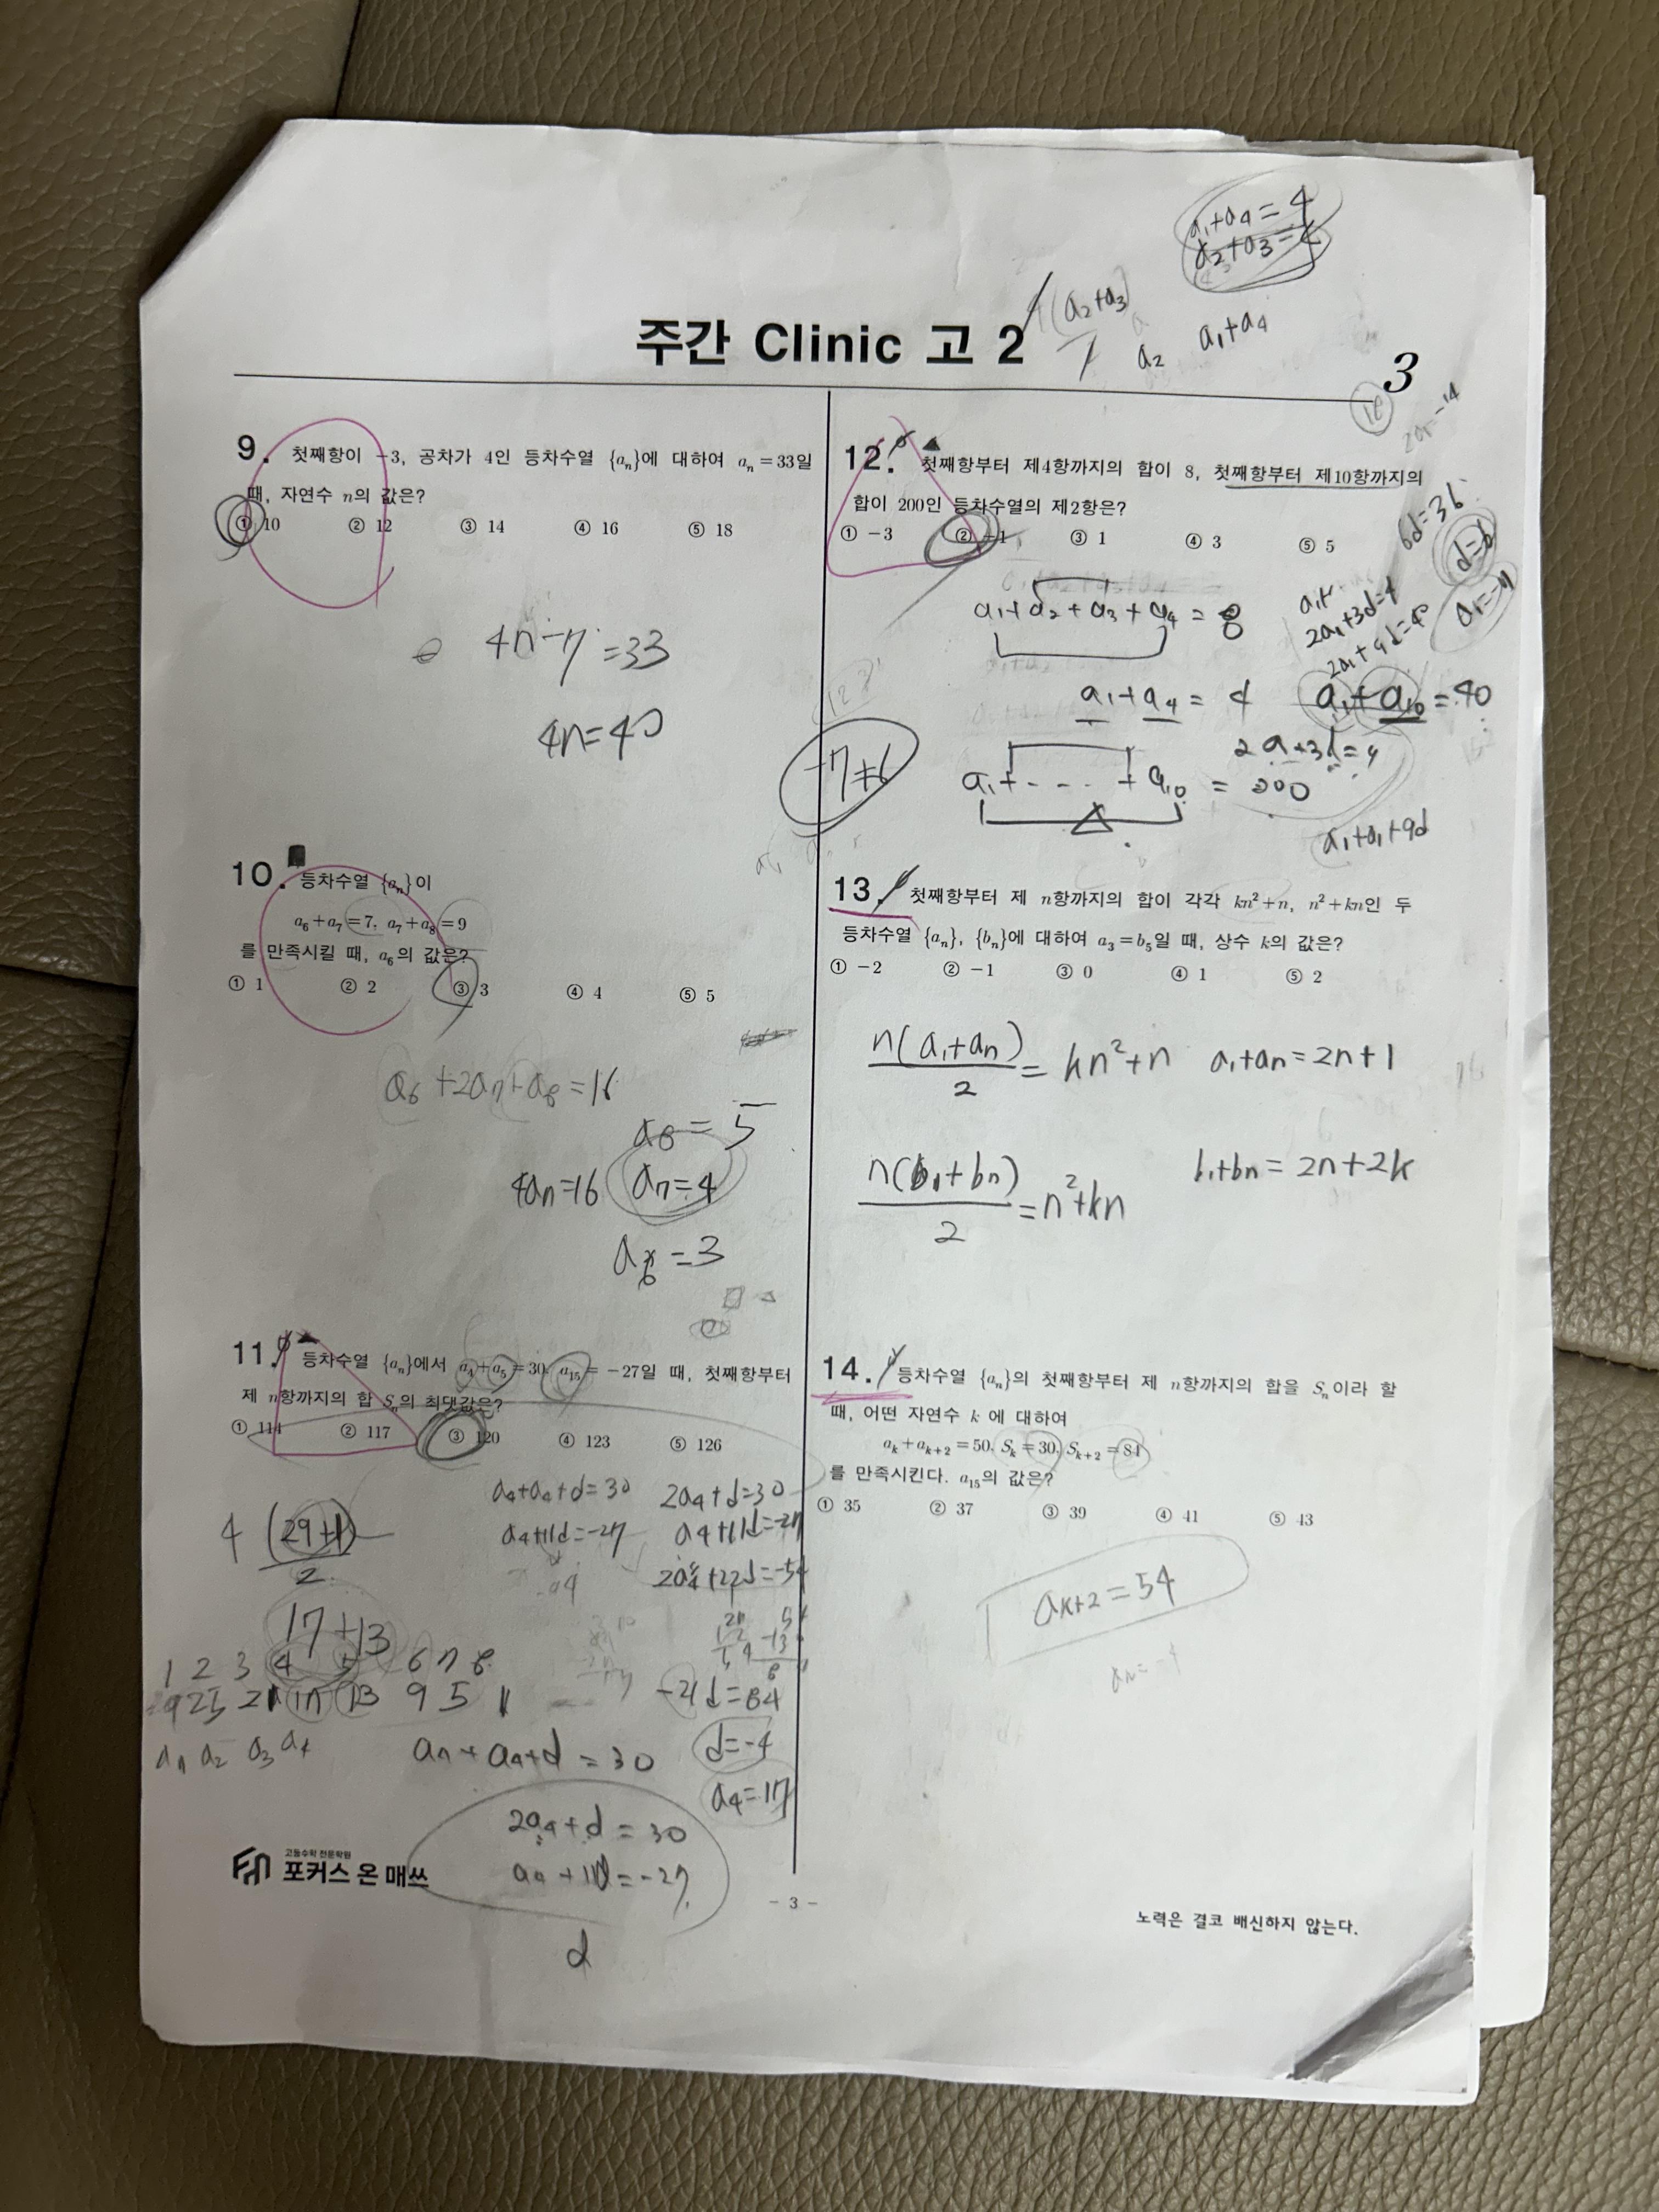 a₁+a₄=4
a₂+a₃=4
(a₂+a₃)
a₂
a₁+a₄
주간 Clinic 고 2
3
9. 첫째항이 -3, 공차가 4인 등차수열 {aₙ}에 대하여 aₙ=33일
때, 자연수 n의 값은?
① 10 ② 12 ③ 14 ④ 16 ⑤ 18
4n-7=33
4n=40
10. 등차수열 {aₙ}이
a₆+a₇=7, a₇+a₈=9
를 만족시킬 때, a₆의 값은?
① 1 ② 2 ③ 3 ④ 4 ⑤ 5
a₆+2a₇+a₈=16
a₈=5
4a₇=16
a₇=4
a₆=3
11. 등차수열 {aₙ}에서 a₄+a₅=30, a₁₅=-27일 때, 첫째항부터
제 n항까지의 합 Sₙ의 최댓값은?
① 114 ② 117 ③ 120 ④ 123 ⑤ 126
a₄+a₄+d=30
2a₄+d=30
4(29+1)/2
a₄+11d=-27
a₄+11d=-27
2a₄+22d=-54
17+13
1 2 3 4 5 6 7 8
25 21 17 13 9 5 1
-21d=84
d=-4
a₁ a₂ a₃ a₄
a₄+a₄+d=30
a₄=17
2a₄+d=30
a₄+11d=-27
d
12. 첫째항부터 제4항까지의 합이 8, 첫째항부터 제10항까지의
합이 200인 등차수열의 제2항은?
① -3 ② -1 ③ 1 ④ 3 ⑤ 5
6d=36
d=6
a₁=-7
a₁+a₂+a₃+a₄=8
2a₁+3d=4
2a₁+9d=40
a₁+a₄=4
a₁+a₁₀=40
2a+3d=4
-7+6
a₁+----+a₁₀=200
a₁+a₁+9d
13. 첫째항부터 제 n항까지의 합이 각각 kn²+n, n²+kn인 두
등차수열 {aₙ}, {bₙ}에 대하여 a₃=b₅일 때, 상수 k의 값은?
① -2 ② -1 ③ 0 ④ 1 ⑤ 2
n(a₁+aₙ)/2=kn²+n a₁+aₙ=2n+1
n(b₁+bₙ)/2=n²+kn b₁+bₙ=2n+2k
14. 등차수열 {aₙ}의 첫째항부터 제 n항까지의 합을 Sₙ이라 할
때, 어떤 자연수 k 에 대하여
aₖ+aₖ₊₂=50, Sₖ=30, Sₖ₊₂=84
를 만족시킨다. a₁₅의 값은?
① 35 ② 37 ③ 39 ④ 41 ⑤ 43
aₖ₊₂=54
고등수학 전문학원
포커스 온 매쓰
- 3 -
노력은 결코 배신하지 않는다.